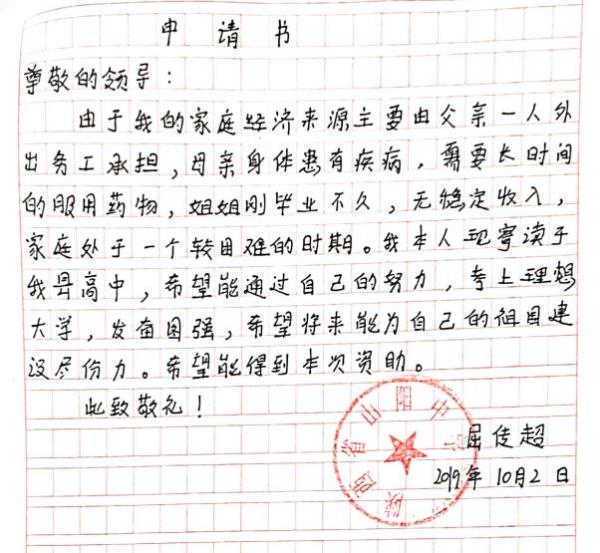 申请书
尊敬的领导：
由于我的家庭经济来源主要由父亲一人外
出务工承担，母亲身体患有疾病，需要长时间
的服用药物，姐姐刚毕业不久，无稳定收入，
家庭处于一个较困难的时期。我本人现寄读于
我县高中，希望能通过自己的努力，考上理想
大学，发奋图强，希望将来能为自己的祖国建
设尽份力。希望能得到本次资助。
此致敬礼！
屈佳超
2019年10月2日
陕西省山阳中